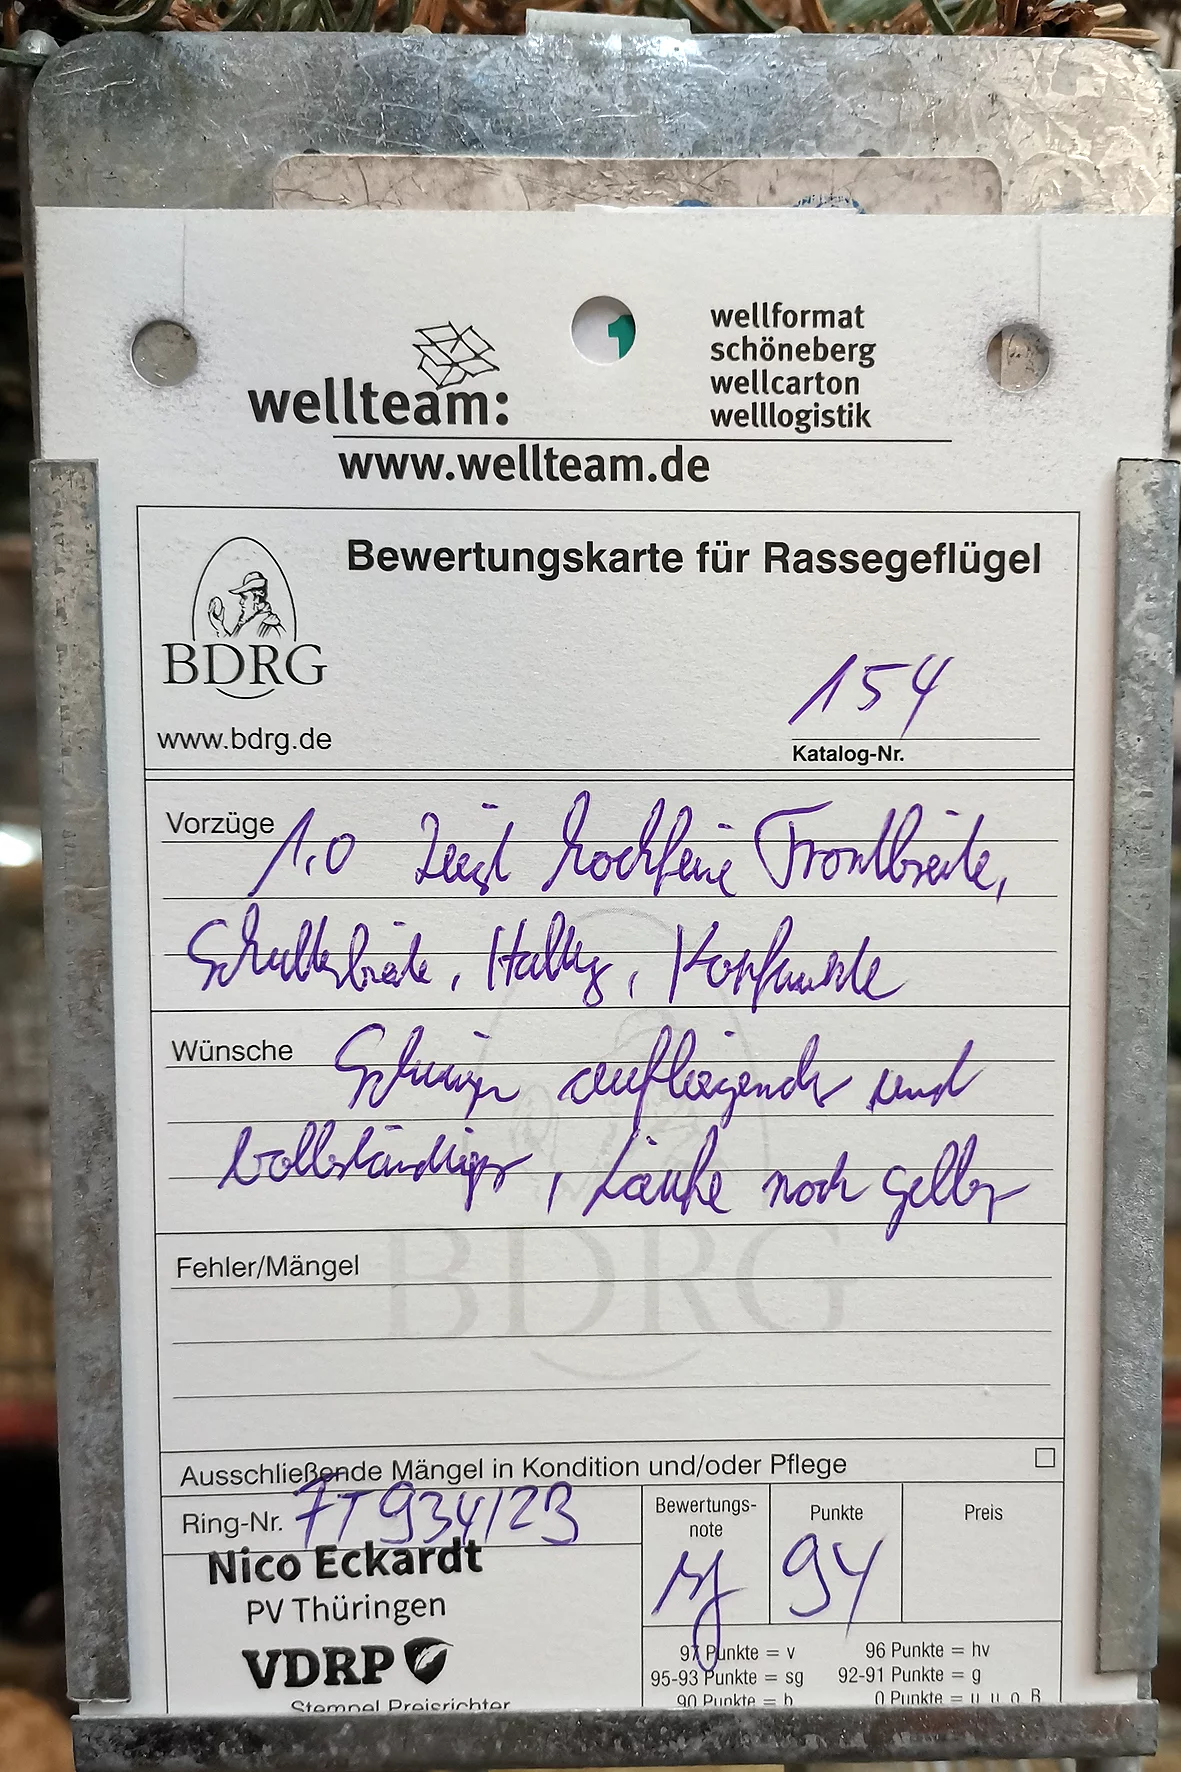 wellteam:
wellformat
schöneberg
wellcarton
welllogistik
www.wellteam.de
Bewertungskarte für Rassegeflügel
BDRG
www.bdrg.de
154
Katalog-Nr.
Vorzüge 1,0 zeigt hochfeine Frontbreite,
Schulterbreite, Haltung, Kopfpunkte
Wünsche Schwingen aufliegender und
vollständiger, Läufe noch gelber
BDRG
Fehler/Mängel
Ausschließende Mängel in Kondition und/oder Pflege
Ring-Nr. FT934/23
Bewertungs-
note
sg
Punkte
94
Preis
Nico Eckardt
PV Thüringen
VDRP
Stempel Preisrichter
97 Punkte = v 96 Punkte = hv
95-93 Punkte = sg 92-91 Punkte = g
90 Punkte = b 0 Punkte = u, u, o. B.